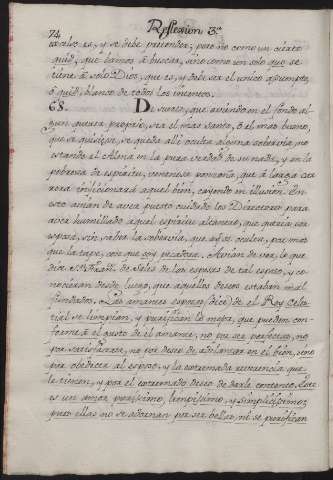 74
Reflexion 3.ª
es, y se debe pretender; pero no como un cierto
quid, que vamos à buscar, sino como un solo que se
tiene à solo Dios, que es, y debe ser el unico assumpto,
ò quid, blanco de todos los intentos.
68. De suerte, que aviendo en el fondo al
gun querer proprio, sea el mas santo, ò el mas bueno,
que se quisiere, se queda alli oculta alguna sobervia, no
estando el Alma en la pura verdad de su nada, y en la
pobreza de espiritu, tenerse ponzoña, que à larga ca
rrera inficionarà aquel bien, cayendo en illusion. En
esto avian de tener puesto cuidado los Directores para
aver humillado aquel espiritu altanero, que queria ser
esposa, sin saber la sobervia, que ay se oculta, por mas
que la tape, con que soy pecadora. Avian de ver, lo que
dice S. Fran.co de Sales de las esposas de tal esposo, y co
nocieran desde luego, que aquellos deseos estaban mal
fundados. Las amantes esposas (dice) de el Rey Celes
tial se limpian, y purifican lo mejor, que pueden con
forme à el gusto de el amante, no por ser perfectas, no
por satisfacerse, no por deseo de adelantar en el bien, sino
por obedecer al esposo, y la extremada reverencia que
le tienen, y por el extremado deseo de darle contento. Este
es un amor purissimo, limpissimo, y simplicissimo;
pues ellas no se adornan por ser bellas, ni se purifican